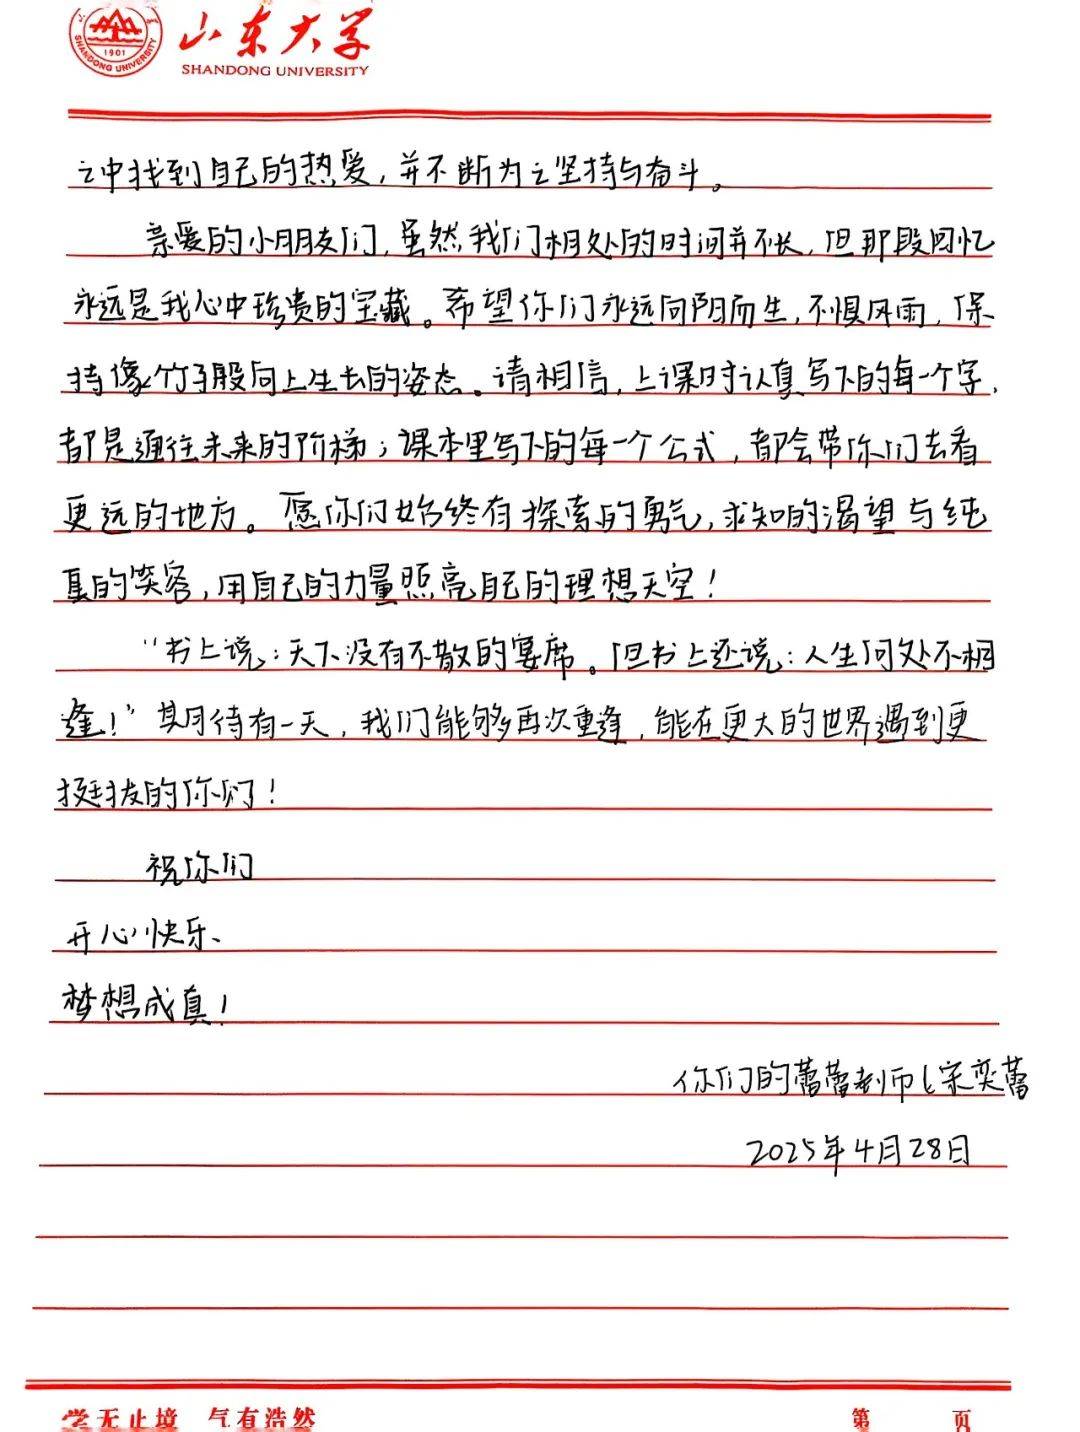 山东大学
SHANDONG UNIVERSITY
1901
SHANDONG UNIVERSITY
之中找到自己的热爱，并不断为之坚持与奋斗。
亲爱的小朋友们，虽然我们相处的时间并不长，但那段回忆
永远是我心中珍贵的宝藏。希望你们永远向阳而生，不惧风雨，保
持像竹子般向上生长的姿态。请相信，上课时认真写下的每一个字，
都是通往未来的阶梯；课本里写下的每一个公式，都会带你们去看
更远的地方。愿你们始终有探索的勇气，求知的渴望与纯
真的笑容，用自己的力量照亮自己的理想天空！
“书上说：天下没有不散的宴席。但书上还说：人生何处不相
逢！”期待有一天，我们能够再次重逢，能在更大的世界遇到更
挺拔的你们！
祝你们
开心快乐、
梦想成真！
你们的蕾蕾老师（宋奕蕾
2025年4月28日
学无止境 气有浩然
第 页